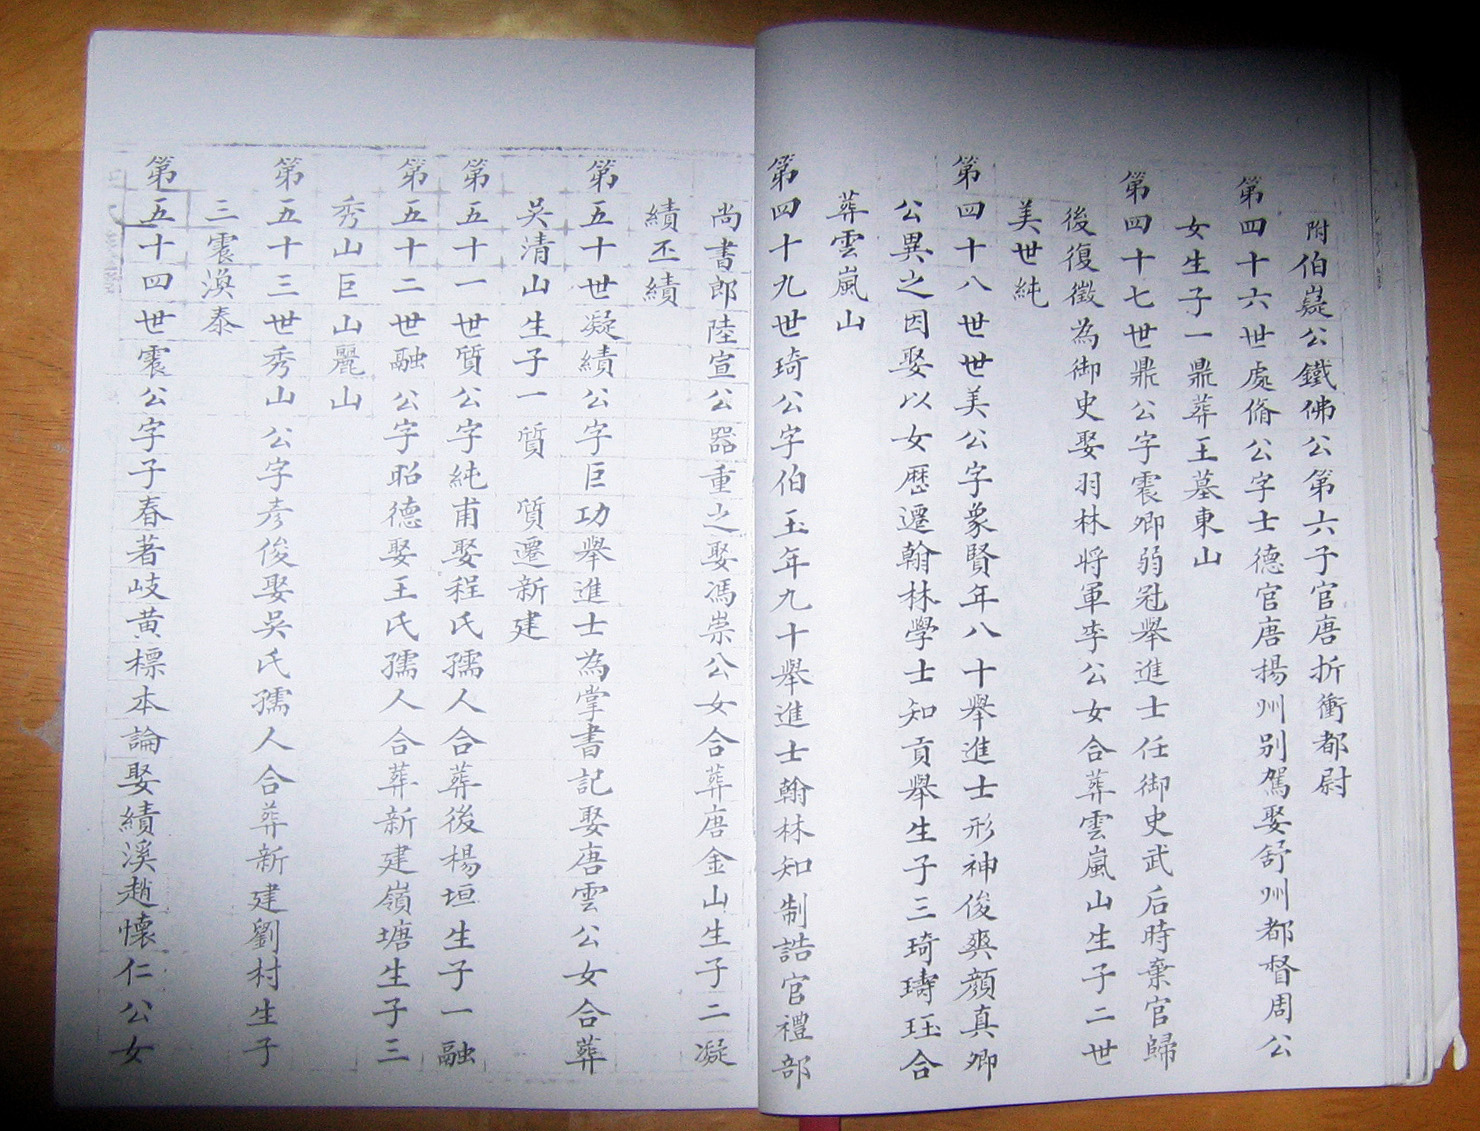 附伯嶷公鐵佛公第六子官唐折衝都尉
第四十六世處脩公字士德官唐揚州别駕娶舒州都督周公
女生子一鼎葬王墓東山
第四十七世鼎公字震卿弱冠舉進士任御史武后時棄官歸
後復徵為御史娶羽林将軍李公女合葬雲嵐山生子二世
美世純
第四十八世世美公字象賢年八十舉進士形神俊爽顔真卿
公異之因娶以女歷遷翰林學士知貢舉生子三琦璹珏合
葬雲嵐山
第四十九世琦公字伯玉年九十舉進士翰林知制誥官禮部
尚書郎陸宣公器重之娶馮崇公女合葬唐金山生子二凝
績丕績
第五十世凝績公字巨功舉進士為掌書記娶唐雲公女合葬
吳清山生子一質 質遷新建
第五十一世質公字純甫娶程氏孺人合葬後楊垣生子一融
第五十二世融公字昭德娶王氏孺人合葬新建嶺塘生子三
秀山巨山麗山
第五十三世秀山公字彦俊娶吳氏孺人合葬新建劉村生子
三震渙泰
第五十四世震公字子春著岐黄標本論娶績溪趙懷仁公女